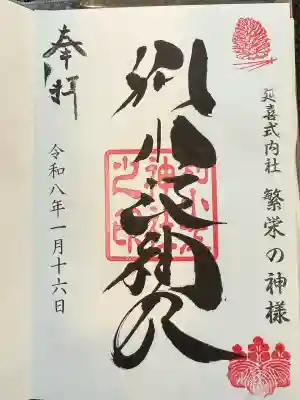 延喜式内社 繁栄の神様
別小江神社
奉拝
令和八年一月十六日